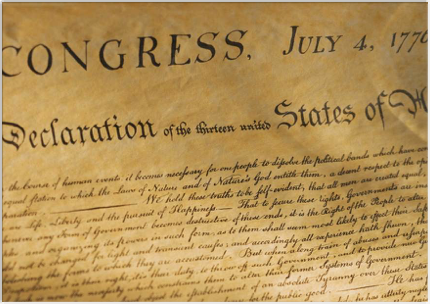 CONGRESS, JULY 4, 1776
Declaration of the thirteen united States of
the course of human events, it becomes necessary for one people to dissolve the political bands which have
equal station to which the Laws of Nature and of Nature's God entitle them, a decent respect to the
We hold these truths to be self-evident, that all men are created equal,
are Life, Liberty and the pursuit of Happiness. — That to secure these rights, Governments are
any Form of Government becomes destructive of these ends, it is the Right of the People to alter
and organizing its powers in such form, as to them shall seem most likely to effect their
not be changed for light and transient causes; and accordingly all experience hath shewn,
the forms to which they are accustomed. But when a long train of abuses and
it is their right, it is their duty, to throw off such Government, and to provide new
the necessity which constrains them to alter their former Systems of Government.
the establishment of an absolute Tyranny over these States.